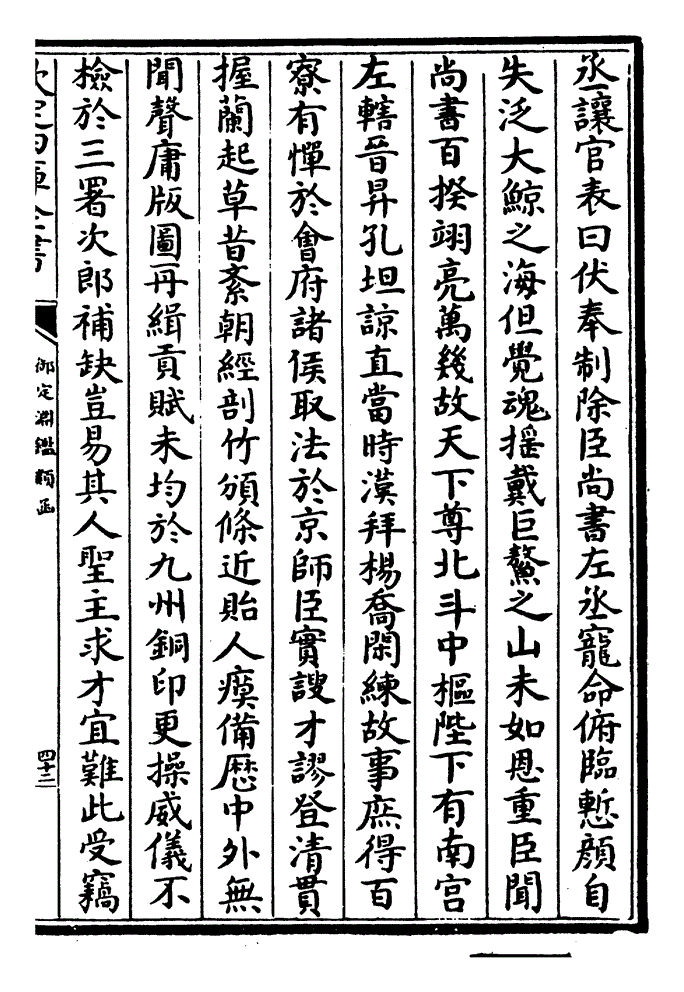 丞讓官表曰伏奉制除臣尚書左丞寵命俯臨慙顔自
失泛大鯨之海但覺魂揺戴巨鰲之山未如恩重臣聞
尚書百揆翊亮萬幾故天下尊北斗中樞陛下有南宫
左轄晉昇孔坦諒直當時漢拜楊喬閑練故事庶得百
寮有憚於㑹府諸侯取法於京師臣實謏才謬登清貫
握蘭起草昔紊朝經剖竹頒條近貽人瘼備歴中外無
聞聲庸版圖再緝貢賦未均於九州銅印更操威儀不
檢於三署次郎補缺豈易其人聖主求才宜難此受竊
欽定四庫全書
御定淵鑑類函
四十三